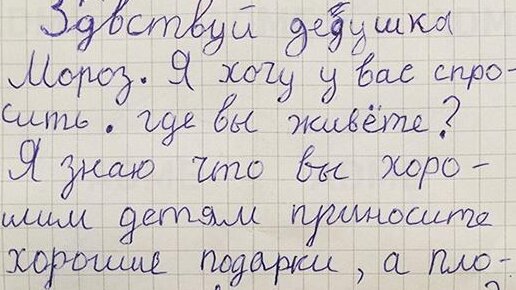 Здвствуй дедушка
Мороз. Я хочу у вас спро-
сить. где вы живёте?
Я знаю что вы хоро-
шим детям приносите
хорошие подарки, а пло-